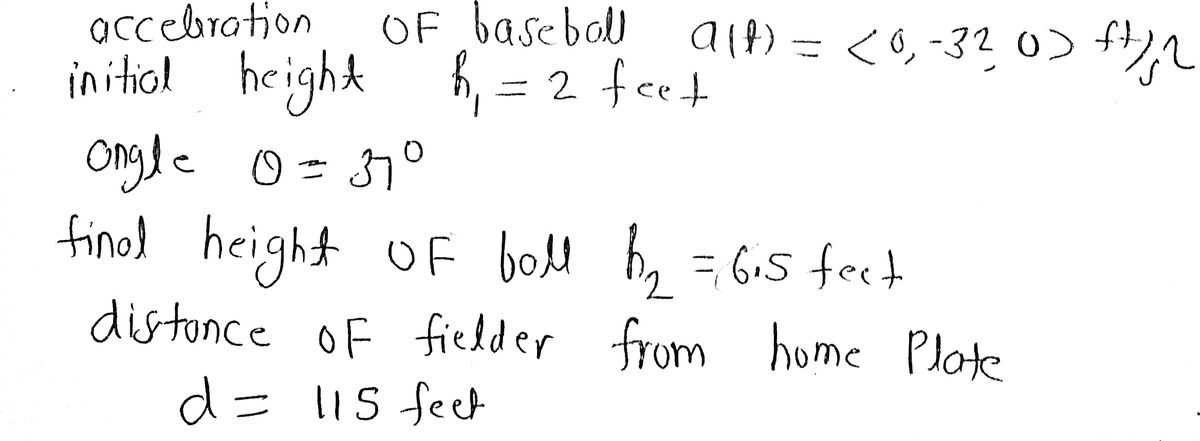 acceleration OF baseball a(t) = <0, -32, 0> ft/s2
initial height h1 = 2 feet
angle θ = 37°
final height OF ball h2 = 6.5 feet
distance OF fielder from home Plate
d = 115 feet